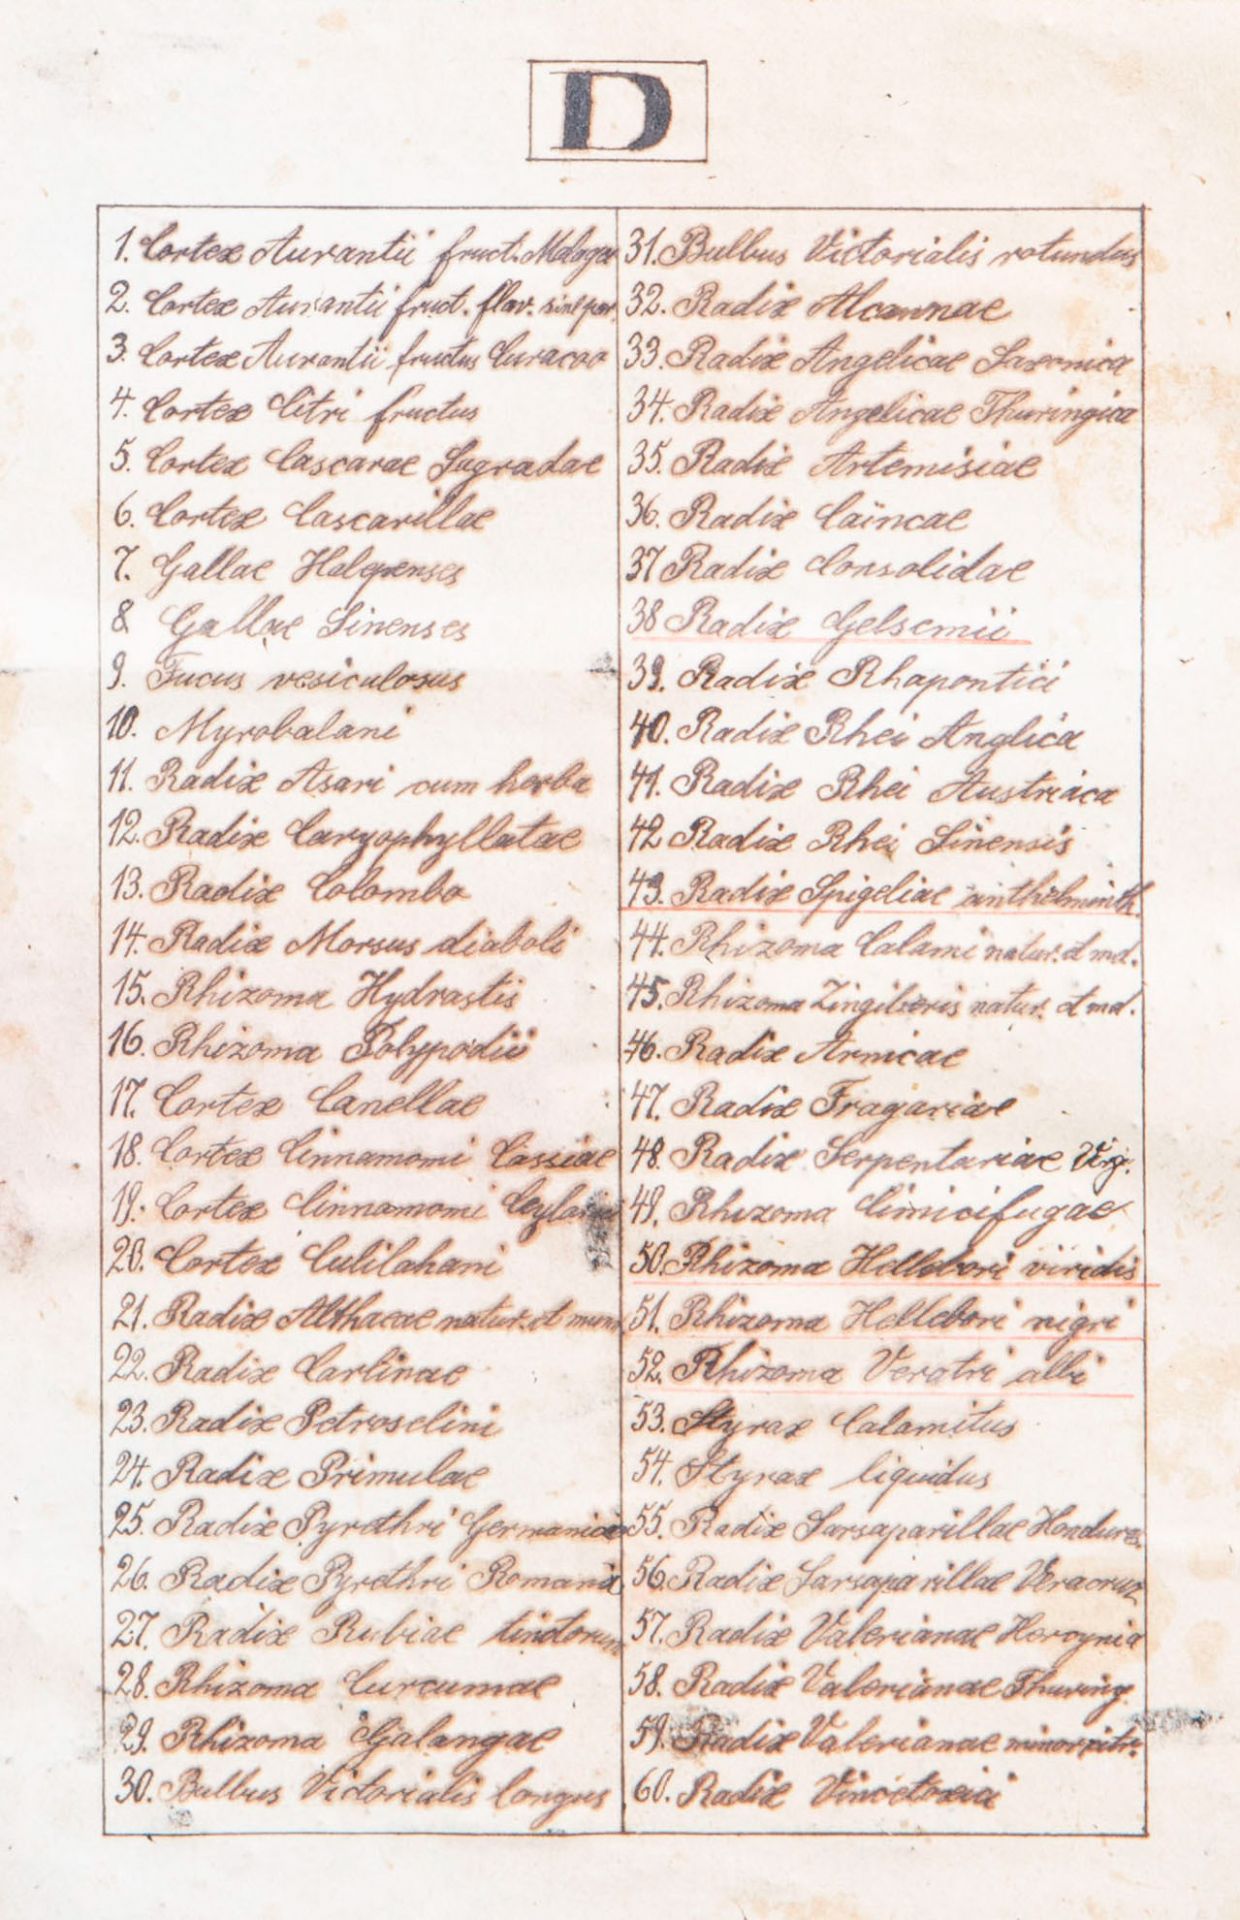 D
1. Cortex Aurantii fruct. Malaga
2. Cortex Aurantii fruct. flav. sine par.
3. Cortex Aurantii fructus Curacao
4. Cortex Citri fructus
5. Cortex Cascarae Sagradae
6. Cortex Cascarillae
7. Gallae Halepenses
8 Gallae Sinenses
9. Fucus vesiculosus
10. Myrobalani
11. Radix Asari cum herba
12. Radix Caryophyllatae
13. Radix Colombo
14. Radix Morsus diaboli
15. Rhizoma Hydrastis
16. Rhizoma Polypodii
17. Cortex Canellae
18. Cortex Cinnamomi Cassiae
19. Cortex Cinnamomi
20. Cortex Culilahani
21. Radix Althaeae natur. et mund
22. Radix Carlinae
23. Radix Petroselini
24. Radix Primulae
25. Radix Pyrethri Germanicae
26. Radix Pyrethri Romana
27. Radix Rubiae tinctorum
28. Rhizoma Curcumae
29. Rhizoma Galangae
30. Bulbus Victorialis longus
31. Bulbus Victorialis rotundus
32. Radix Alcannae
33. Radix Angelicae Saxonica
34. Radix Angelicae Thuringica
35. Radix Artemisiae
36. Radix Caïncae
37 Radix Consolidae
38 Radix Gelsemii
39. Radix Rhapontici
40. Radix Rhei Anglica
41. Radix Rhei Austriaca
42 Radix Rhei Sinensis
43. Radix Spigeliae anthelminth.
44. Rhizoma Calami natur. et md.
45. Rhizoma Zingiberis natur. et md.
46. Radix Arnicae
47. Radix Fragariae
48. Radix Serpentariae Virg.
49. Rhizoma Cimicifugae
50. Rhizoma Hellebori viridis
51. Rhizoma Hellebori nigri
52. Rhizoma Veratri albi
53. Styrax Calamitus
54. Styrax liquidus
55. Radix Sarsaparillae Honduras
56 Radix Sarsaparillae Veracruz
57. Radix Valerianae Hercynia
58. Radix Valerianae Thuring.
59. Radix Valerianae minor
60. Radix Vincetoxici